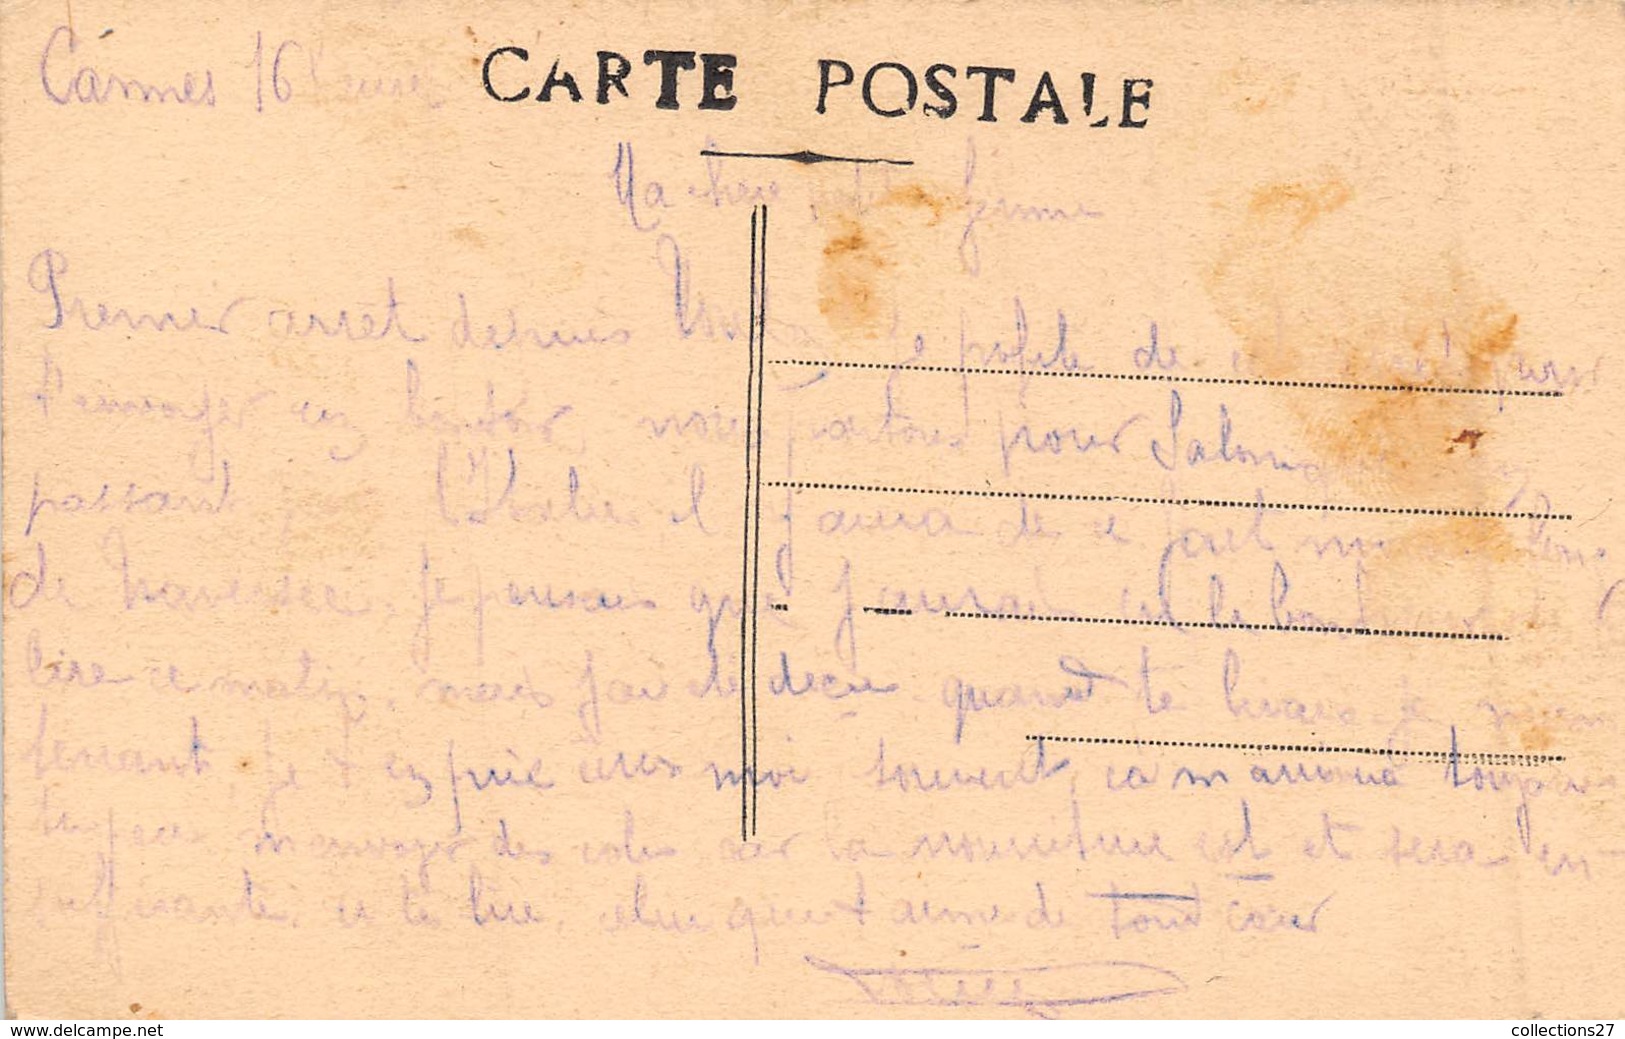 Cannes 16 heures
CARTE POSTALE
Ma chere petite femme
Premier arret depuis je profite de pour
t'envoyer un bonjour, nous partons pour Salonique en
passant par l'Italie il y aura de ce fait moins long
de traversee. Je pensais que j'aurais eut le bonheur de te
lire ce matin, mais j'ai été deçu. quand te lirais-je main
tenant, je t en prie ecris moi souvent, ca m arrivera toujours
tu peux m'envoyer des colis car la nourriture est et sera in-
suffisante. a te lire, celui qui t aime de tout cœur
www.delcampe.net
collections27